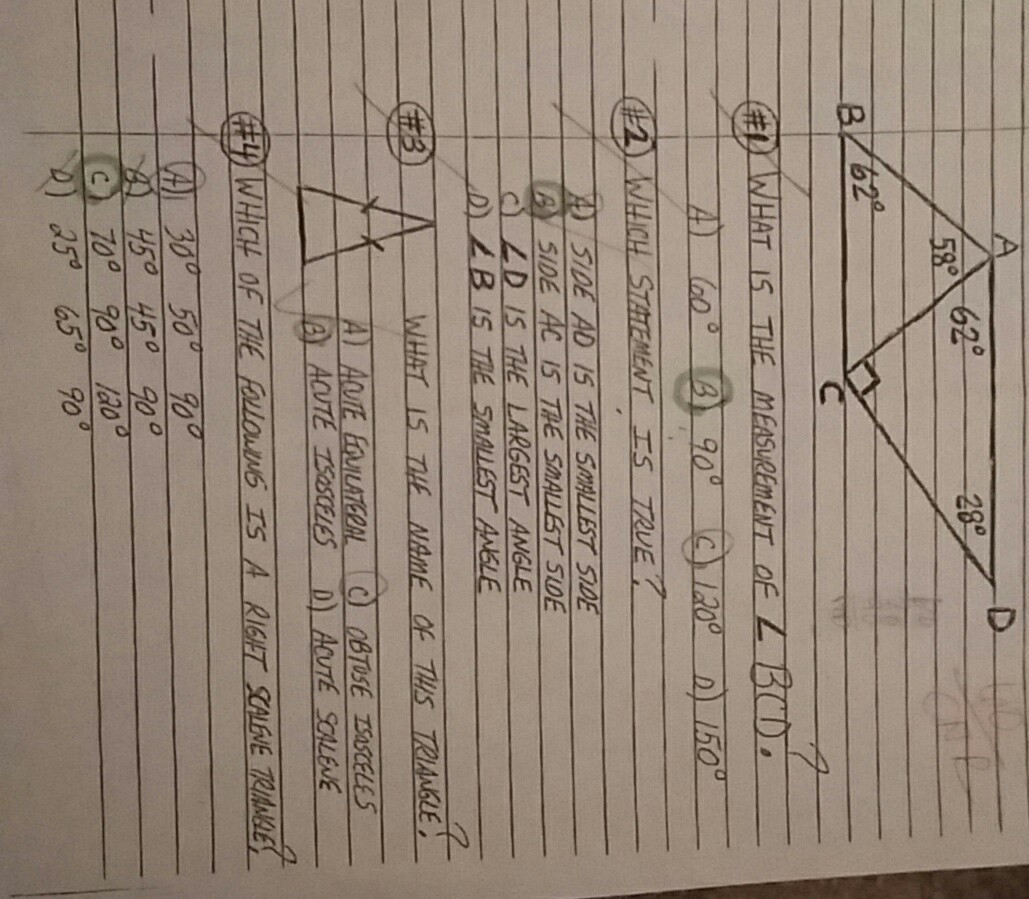 A
B
62°
58°
62°
28°
D
C
#1 WHAT IS THE MEASUREMENT OF ∠BCD.?
A) 60° B) 90° C) 120° D) 150°
#2 WHICH STATEMENT IS TRUE?
A) SIDE AD IS THE SMALLEST SIDE
B) SIDE AC IS THE SMALLEST SIDE
C) ∠D IS THE LARGEST ANGLE
D) ∠B IS THE SMALLEST ANGLE
#3 WHAT IS THE NAME OF THIS TRIANGLE?
A) ACUTE EQUILATERAL C) OBTUSE ISOSCELES
B) ACUTE ISOSCELES D) ACUTE SCALENE
#4 WHICH OF THE FOLLOWING IS A RIGHT SCALENE TRIANGLE?
A) 30° 50° 90°
B) 45° 45° 90°
C) 70° 90° 120°
D) 25° 65° 90°